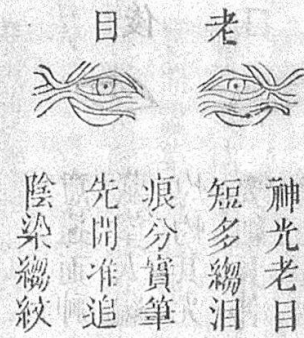 老目
神光老目
短多縐泪
痕分實筆
先開准追
陰染縐紋